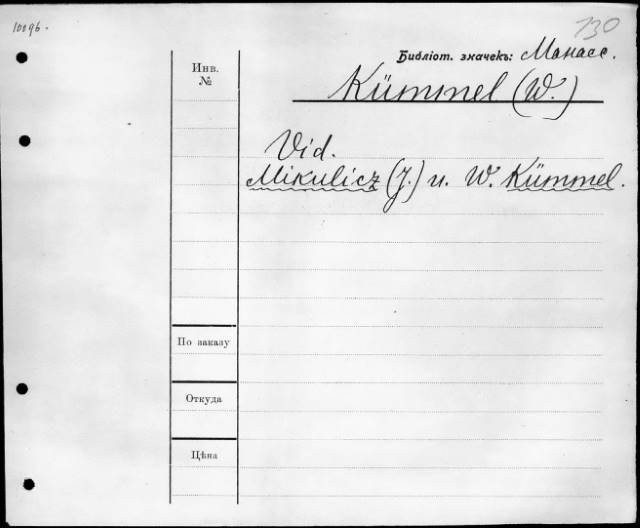 10096.
130
Библіот. значекъ: Манасс.
Инв.
№
Kümmel (W.)
Vid.
Mikulicz (J.) u. W. Kümmel.
По заказу
Откуда
Цѣна